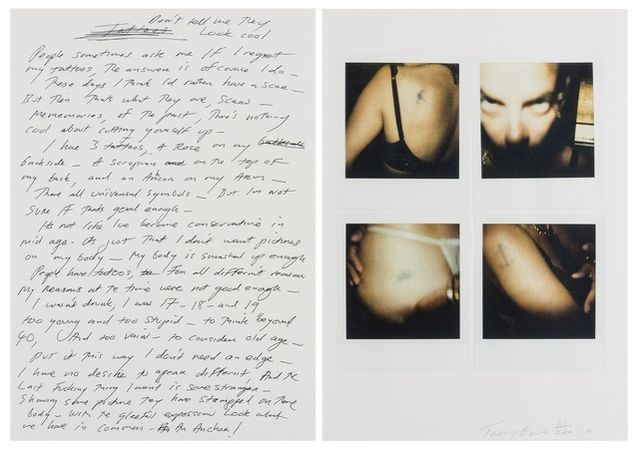 Don't tell me They
Tattoos Look cool
People sometimes ask me If I regret
my tattoos, The answer is of course I do –
These days I think I'd rather have a scar –
But Then Thats what They are, Scars –
Mememories, of The past, There's nothing
cool about cutting yourself up –
I have 3 tattoos, A Rose on my
backside – A Scorping on the top of
my back, and an Ancor on my Arm –
There all universal symbols – But Im not
Sure If thats good enough –
Its not like Ive become conservative in
mid age – Its just That I don't want pictures
on my body – My body is smashed up enough
People have tattoos, For all different reason
My reasons at Te time were not good enough –
I wasn't drunk, I was 17 – 18 – and 19
too young and too stupid – to think beyond
40, And too vain – to consider old age –
Put it this way I don't need an edge –
I have no desire to apear different, And the
Last Fucking Thing I want is some stranger –
Showing some picture They have stamped on There
body – With The gleeful expression Look what
we have in Common – An Anchor!